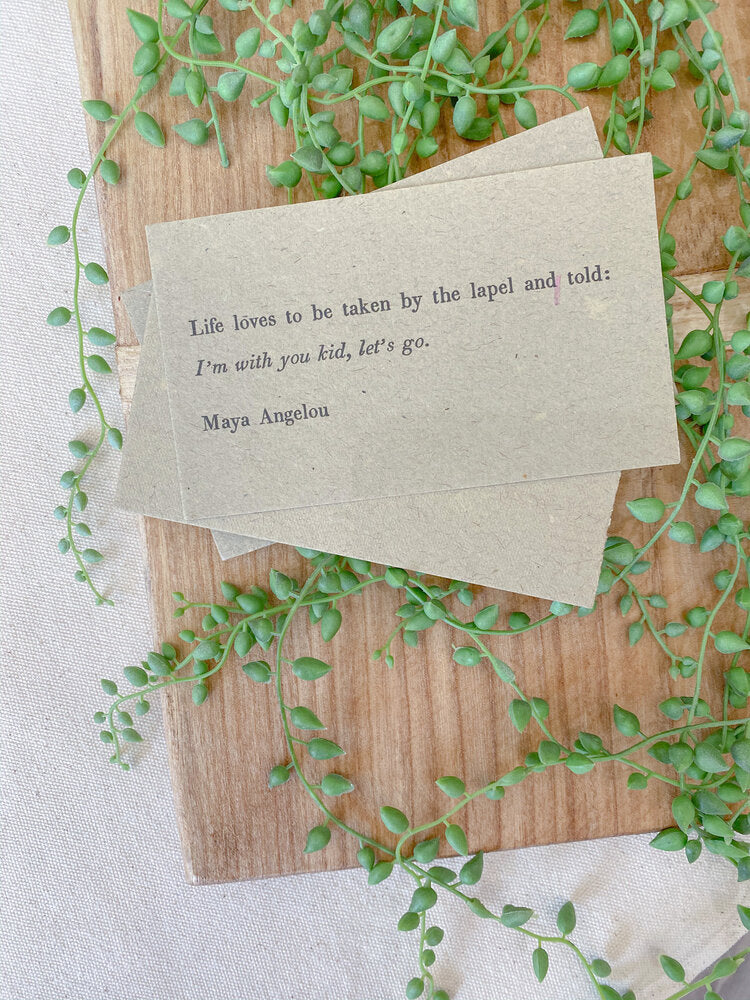 Life loves to be taken by the lapel and told:
I'm with you kid, let's go.
Maya Angelou